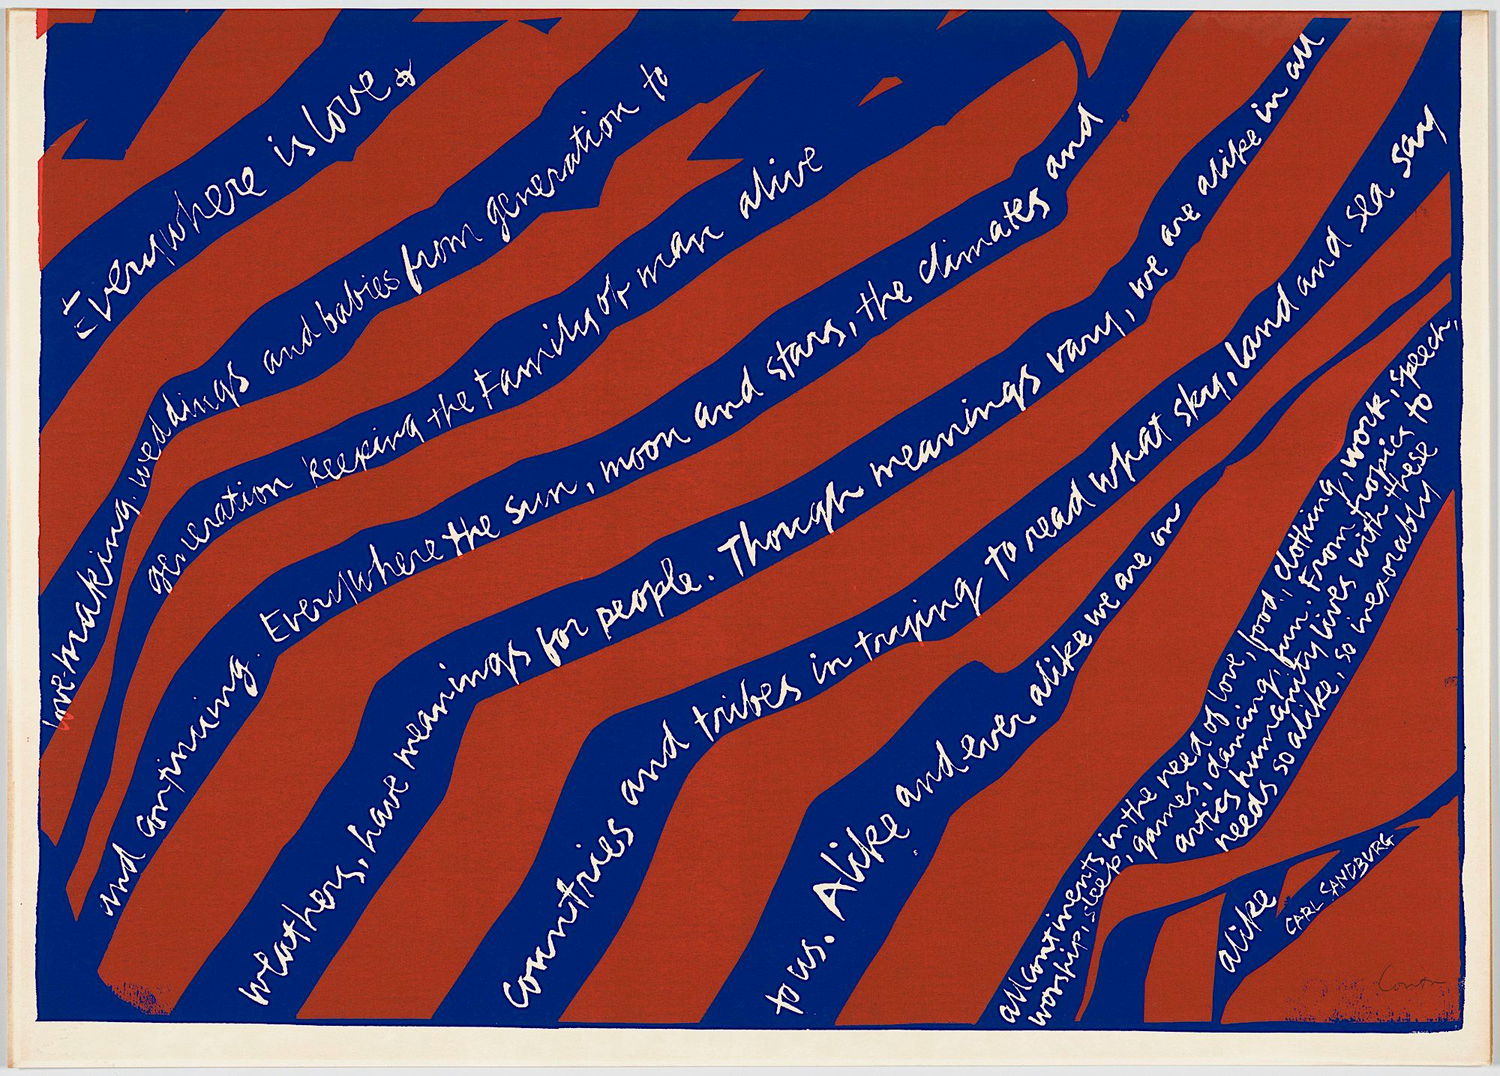 Everywhere is love &
love-making, weddings and babies from generation to
generation keeping the Family of man alive
and continuing. Everywhere the sun, moon and stars, the climates and
weathers, have meanings for people. Though meanings vary, we are alike in all
countries and tribes in trying to read what sky, land and sea say
to us. Alike and ever alike we are on
all continents in the need of love, food, clothing, work, speech,
worship, sleep, games, dancing, fun. From tropics to
arctics humanity lives with these
needs so alike, so inexorably
alike
CARL SANDBURG